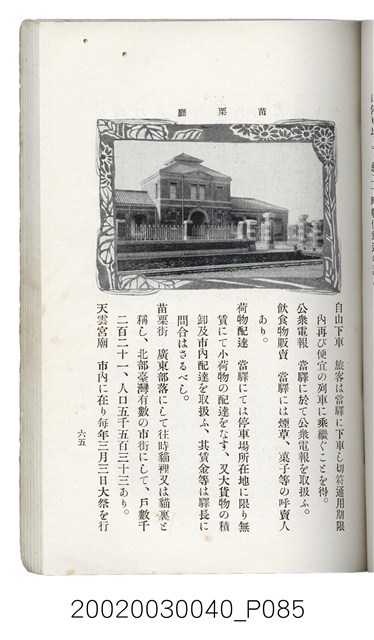 苗栗廳
自由下車　旅客は當驛に下車し切符通用期限
內再び便宜の列車に乘繼ぐことを得。
公衆電報　當驛に於て公衆電報を取扱ふ。
飮食物販賣　當驛には煙草、菓子等の呼賣人
あり。
荷物配達　當驛にては停車場所在地に限り無
賃にて小荷物の配達をなす、又大貨物の積
卸及市內配達を取扱ふ、其賃金等は驛長に
問合はさるべし。
苗栗街　廣東部落にして往時貓裡又は貓裏と
稱し、北部臺灣有數の市街にして、戶數千
二百二十一、人口五千五百三十三あり。
天雲宮廟　市內に在り每年三月三日大祭を行
六五
20020030040_P085